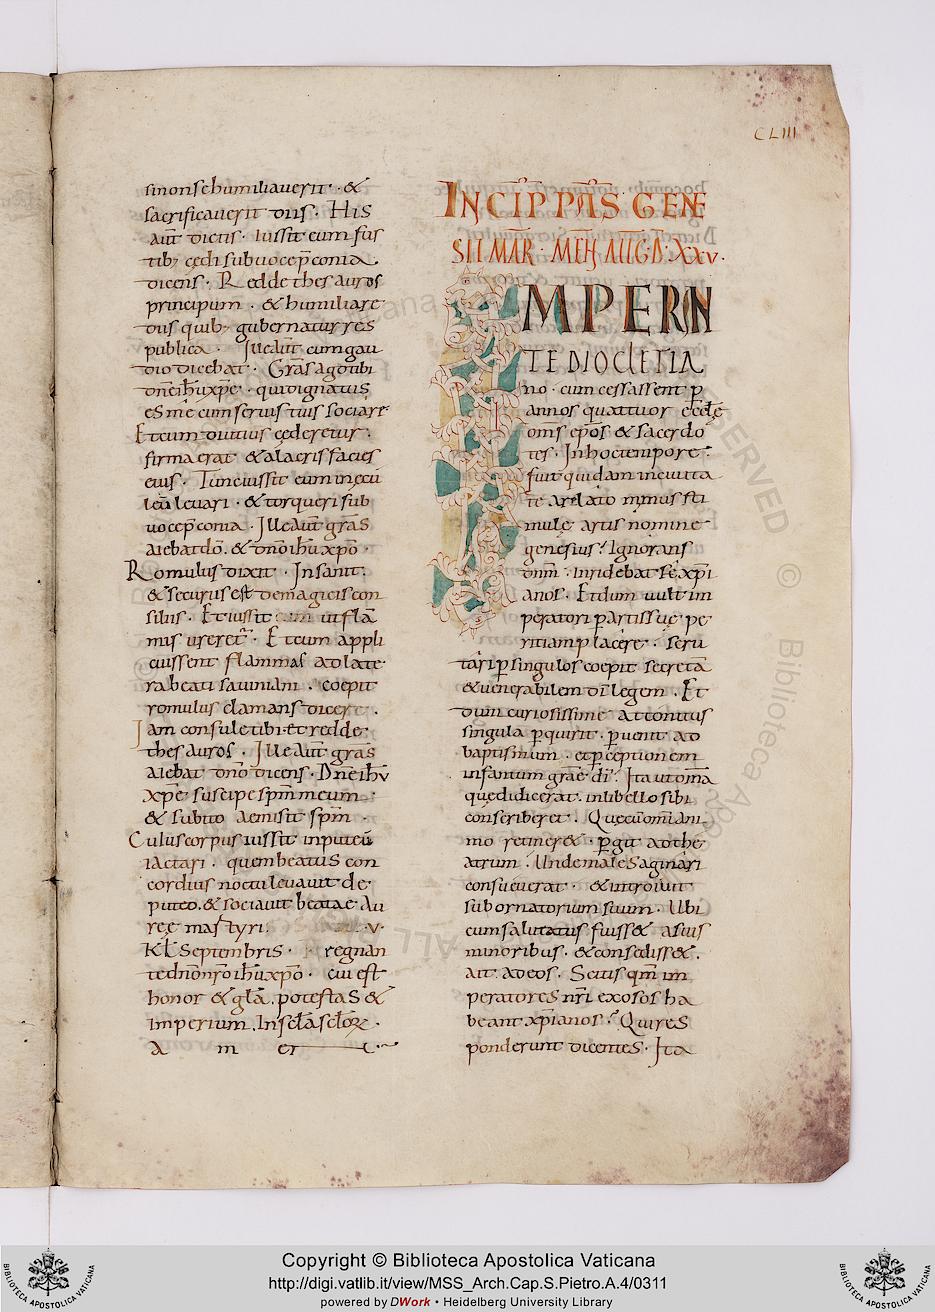 CLIII
si non se humiliauerit · &
sacrificauerit diis · His
aut̄ dictis · iussit eum fus
tibꝫ cędi sub uoce p̄conia ·
dicens · Redde thesauros
principum · & humiliare
diis quibꝫ gubernatur res
publica · Ille aut̄ cum gau
dio dicebat · Grās ago tibi
dn̄e ih̄u xp̄e · qui dignatus
es me cum seruis tuis sociare
Et cum diutius cęderetur ·
firma erat & alacris facies
eius · Tunc iussit eum in ecu
leū leuari · & torqueri sub
uoce p̄conia · Ille aut̄ grās
aiebat dō · & dn̄o ih̄u xp̄o ·
Romulus dixit · Insanit ·
& securus est de magicis con
siliis · Et iussit eum ut flā
mis ureret̄ · Et cum appli
cuissent flammas ad late
ra beati sauiniani · coepit
romulus clamans dicere ·
Iam consule tibi · et redde
thesauros · Ille aut̄ grās
aiebat dn̄o dicens · Dn̄e ih̄u
xp̄e suscipe sp̄m meum ·
& subito aemisit sp̄m ·
Cuius corpus iussit in puteū
iactari · quem beatus con
cordius noctu leuauit de
puteo · & sociauit beatae Au
reę martyri · V ·
Kl̄ Septembris · regnan
te dn̄o n̄ro ih̄u xp̄o · cui est
honor & glā · potestas &
imperium · In sclā sclōꝝ ·
a m e n
INCIP PAS̄ GENE
SII MAR̄ · MEN̄S AUG̅ · D̅ · XXV ·
IMPERAN
TE DIOCLETIA
no · cum cessassent p̄
annos quattuor ecclę
om̄s ep̄os & sacerdo
tes · In hoc tempore
fuit quidam in ciuita
te arelato mimus sti
mulę artis nomine
genesius · Ignorans
dn̄m · inridebat se xp̄i
anos · Et dum uult im
peratori partis suę pe
ritiam placere · seru
tari p̄ singulos coepit secretā
& uenerabilem dī legem · Et
dum curiosissime attonitus
singula p̄quirit · p̄uenit ad
baptismum · et p̄ceptionem
infantum grāe dī · Ita ut om̄a
quę didicerat · in libello sibi
conscriberet · Quę cū om̄i ani
mo retiner& · p̄git ad the
atrum · Unde male saginari
consueuerat · & introiuit
subornatorium suum · Ubi
cum salutatus fuiss& a suis
minoribus · & consediss& ·
ait ad eos · Scitis qm̄ im
peratores nr̄i exosos ha
beant xp̄ianos · Qui res
ponderunt dicentes · Ita
Copyright © Biblioteca Apostolica Vaticana
http://digi.vatlib.it/view/MSS_Arch.Cap.S.Pietro.A.4/0311
powered by DWork • Heidelberg University Library